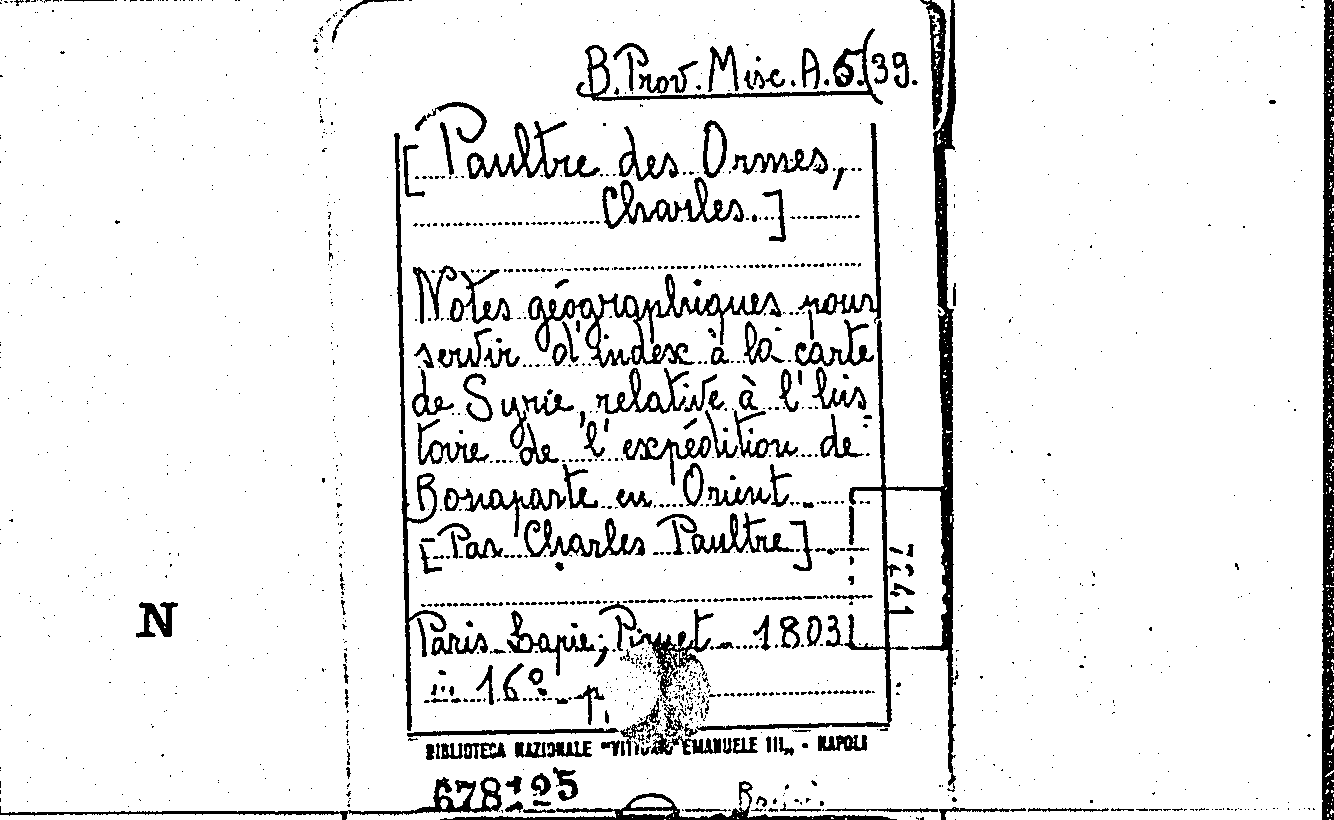 B. Prov. Misc. A. 5.(39.
[Paultre des Ormes,
Charles.]
Notes géographiques pour
servir d'index à la carte
de Syrie, relative à l'his
toire de l'expédition de
Bonaparte en Orient.
[Par Charles Paultre].
Paris. Lapie; Piquet. 1803
in 16º. p.
BIBLIOTECA NAZIONALE "VITTORIO EMANUELE III„ - NAPOLI
678125
N